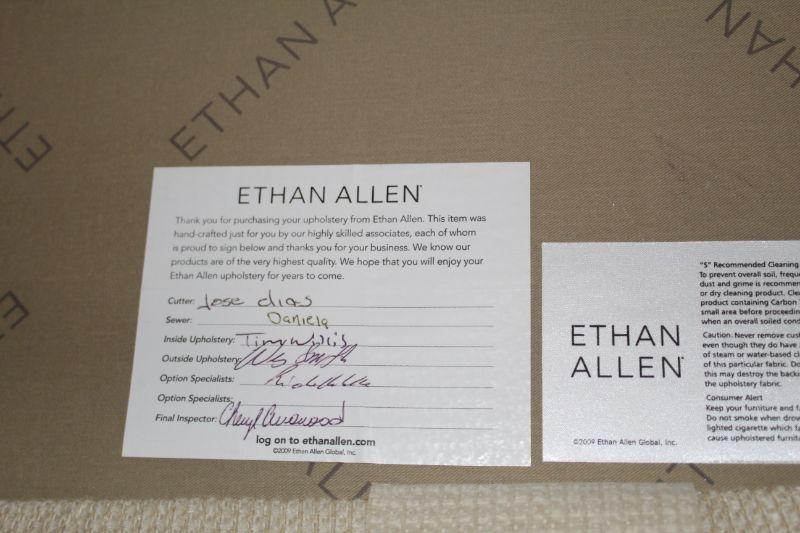 ETHAN A
ETHAN
ETHAN ALLEN
Thank you for purchasing your upholstery from Ethan Allen. This item was
hand-crafted just for you by our highly skilled associates, each of whom
is proud to sign below and thanks you for your business. We know our
products are of the very highest quality. We hope that you will enjoy your
Ethan Allen upholstery for years to come.
Cutter: Jose dias
Sewer: Daniela
Inside Upholstery: Timy Willis
Outside Upholstery:
Option Specialists:
Option Specialists:
Final Inspector: Cheryl
log on to ethanallen.com
©2009 Ethan Allen Global, Inc.
ETHAN
ALLEN
©2009 Ethan Allen Global, Inc.
"S" Recommended Cleaning
To prevent overall soil, frequ
dust and grime is recommen
or dry cleaning product. Clea
product containing Carbon
small area before proceedin
when an overall soiled cond
Caution: Never remove cush
even though they do have
of steam or water-based cl
of this particular fabric. Do
this may destroy the backi
the upholstery fabric.
Consumer Alert
Keep your furniture and f
Do not smoke when drow
lighted cigarette which fa
cause upholstered furnitu